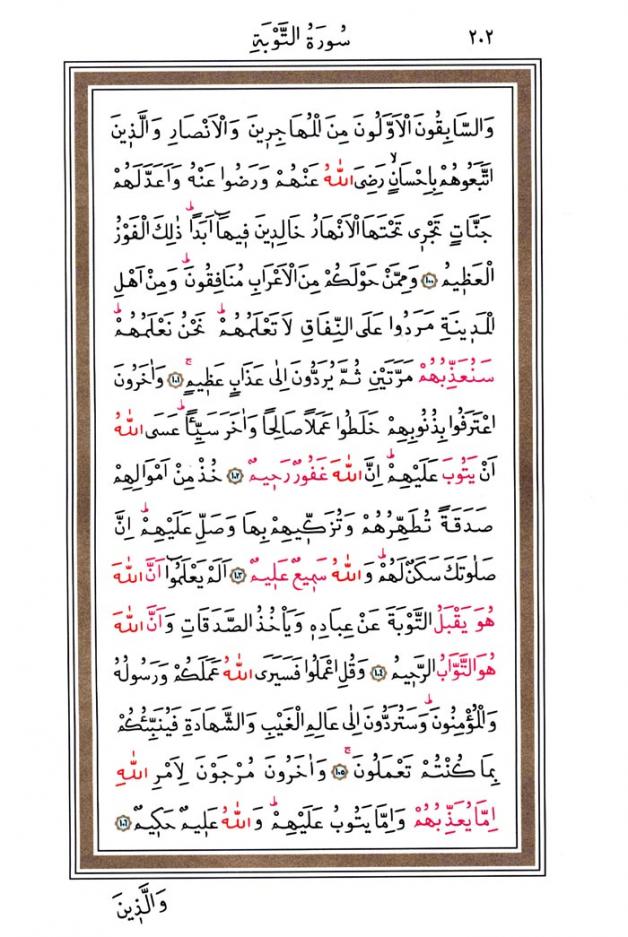 ٢٠٢ سُورَةُ التَّوْبَةِ
وَالسَّابِقُونَ الْاَوَّلُونَ مِنَ الْمُهَاجِرِينَ وَالْاَنْصَارِ وَالَّذِينَ
اتَّبَعُوهُمْ بِاِحْسَانٍۙ رَضِىَ اللّٰهُ عَنْهُمْ وَرَضُوا عَنْهُ وَاَعَدَّ لَهُمْ
جَنَّاتٍ تَجْرِى تَحْتَهَا الْاَنْهَارُ خَالِدِينَ فِيهَٓا اَبَدًاۜ ذٰلِكَ الْفَوْزُ
الْعَظِيمُ ﴿١٠٠﴾ وَمِمَّنْ حَوْلَكُمْ مِنَ الْاَعْرَابِ مُنَافِقُونَۜ وَمِنْ اَهْلِ
الْمَدِينَةِ مَرَدُوا عَلَى النِّفَاقِ لَا تَعْلَمُهُمْۜ نَحْنُ نَعْلَمُهُمْۜ
سَنُعَذِّبُهُمْ مَرَّتَيْنِ ثُمَّ يُرَدُّونَ اِلٰى عَذَابٍ عَظِيمٍۚ ﴿١٠١﴾ وَاٰخَرُونَ
اعْتَرَفُوا بِذُنُوبِهِمْ خَلَطُوا عَمَلًا صَالِحًا وَاٰخَرَ سَيِّئًاۜ عَسَى اللّٰهُ
اَنْ يَتُوبَ عَلَيْهِمْۜ اِنَّ اللّٰهَ غَفُورٌ رَحِيمٌ ﴿١٠٢﴾ خُذْ مِنْ اَمْوَالِهِمْ
صَدَقَةً تُطَهِّرُهُمْ وَتُزَكِّيهِمْ بِهَا وَصَلِّ عَلَيْهِمْۜ اِنَّ
صَلٰوتَكَ سَكَنٌ لَهُمْۜ وَاللّٰهُ سَمِيعٌ عَلِيمٌ ﴿١٠٣﴾ اَلَمْ يَعْلَمُٓوا اَنَّ اللّٰهَ
هُوَ يَقْبَلُ التَّوْبَةَ عَنْ عِبَادِهِ وَيَأْخُذُ الصَّدَقَاتِ وَاَنَّ اللّٰهَ
هُوَ التَّوَّابُ الرَّحِيمُ ﴿١٠٤﴾ وَقُلِ اعْمَلُوا فَسَيَرَى اللّٰهُ عَمَلَكُمْ وَرَسُولُهُ
وَالْمُؤْمِنُونَۜ وَسَتُرَدُّونَ اِلٰى عَالِمِ الْغَيْبِ وَالشَّهَادَةِ فَيُنَبِّئُكُمْ
بِمَا كُنْتُمْ تَعْمَلُونَۚ ﴿١٠٥﴾ وَاٰخَرُونَ مُرْجَوْنَ لِاَمْرِ اللّٰهِ
اِمَّا يُعَذِّبُهُمْ وَاِمَّا يَتُوبُ عَلَيْهِمْۜ وَاللّٰهُ عَلِيمٌ حَكِيمٌ ﴿١٠٦﴾
وَالَّذِينَ